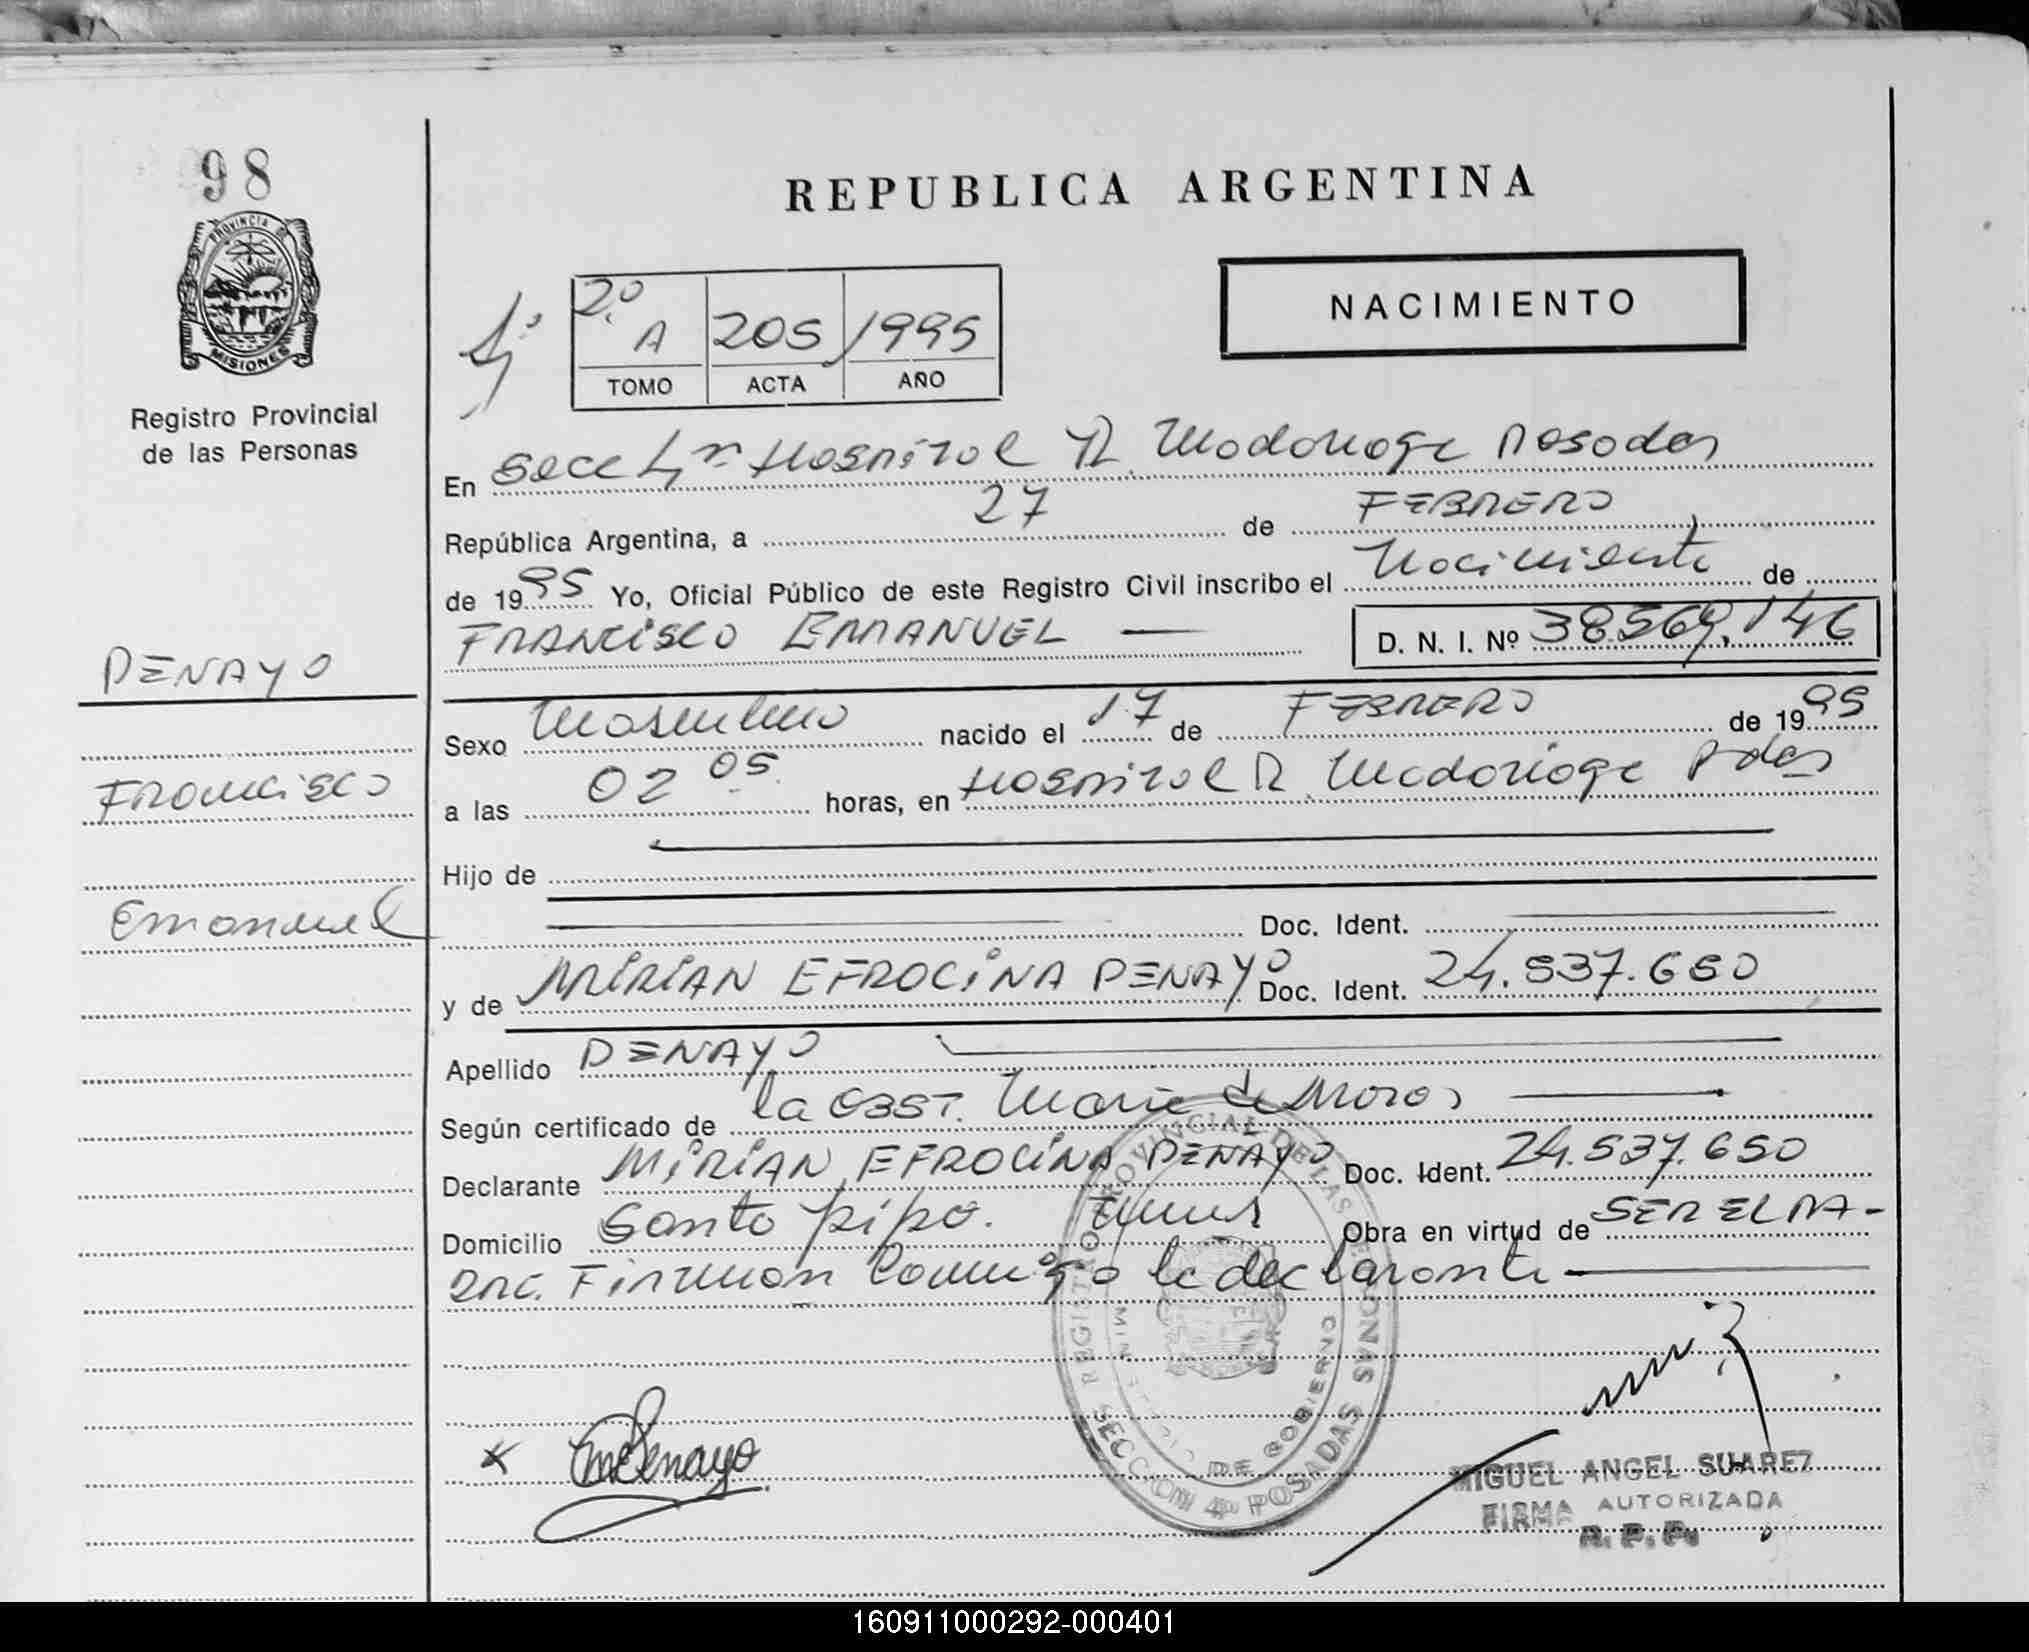 98
PROVINCIA DE
MISIONES
Registro Provincial
de las Personas
REPUBLICA ARGENTINA
NACIMIENTO
2º
A 205 1995
TOMO ACTA AÑO
En Secc 4ª Hospital R. Madariaga Posadas
República Argentina, a 27 de FEBRERO
de 1995 Yo, Oficial Público de este Registro Civil inscribo el Nacimiento de
FRANCISCO EMANUEL D. N. I. Nº 38.569.146
PENAYO
Francisco
Emanuel
Sexo Masculino nacido el 17 de FEBRERO de 1995
a las 02 05 horas, en Hospital R. Madariaga Pdas
Hijo de
Doc. Ident.
y de MIRIAN EFROCINA PENAYO Doc. Ident. 24.537.650
Apellido PENAYO
Según certificado de la OBST. Maria de
Declarante MIRIAN EFROCINA PENAYO Doc. Ident. 24.537.650
Domicilio Santo pipo. Obra en virtud de SER EL PA-
Firman conmigo la declarante
REGISTRO PROVINCIAL DE LAS PERSONAS
MINISTERIO DE GOBIERNO
SECCION 4ª POSADAS
Penayo
MIGUEL ANGEL SUAREZ
FIRMA AUTORIZADA
R. P. P.
160911000292-000401